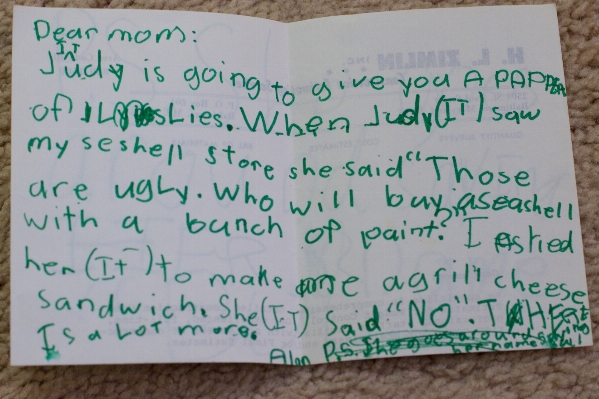 Dear mom:
IT
Judy is going to give you A PAPPER
of Lies. When Judy (IT) saw
my seshell store she said "Those
are ugly. Who will buy a seashell
with a bunch of paint". I asked
her (It) to make me a agrill cheese
sandwich. She (IT) said "NO". 
Is a Lot more.
Alan P.S. She goes around
her name
H. L. ZIMLIN INC.